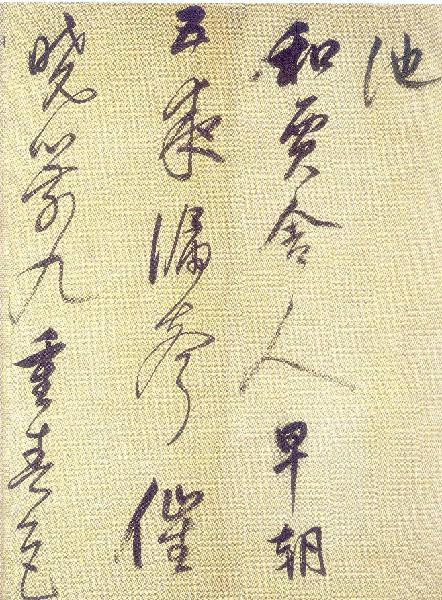 池
和賈舍人早朝
五夜漏聲催
曉箭九重春色